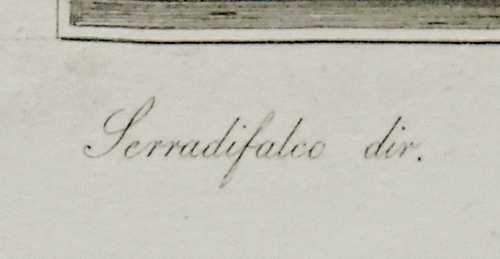 Serradifalco dir.